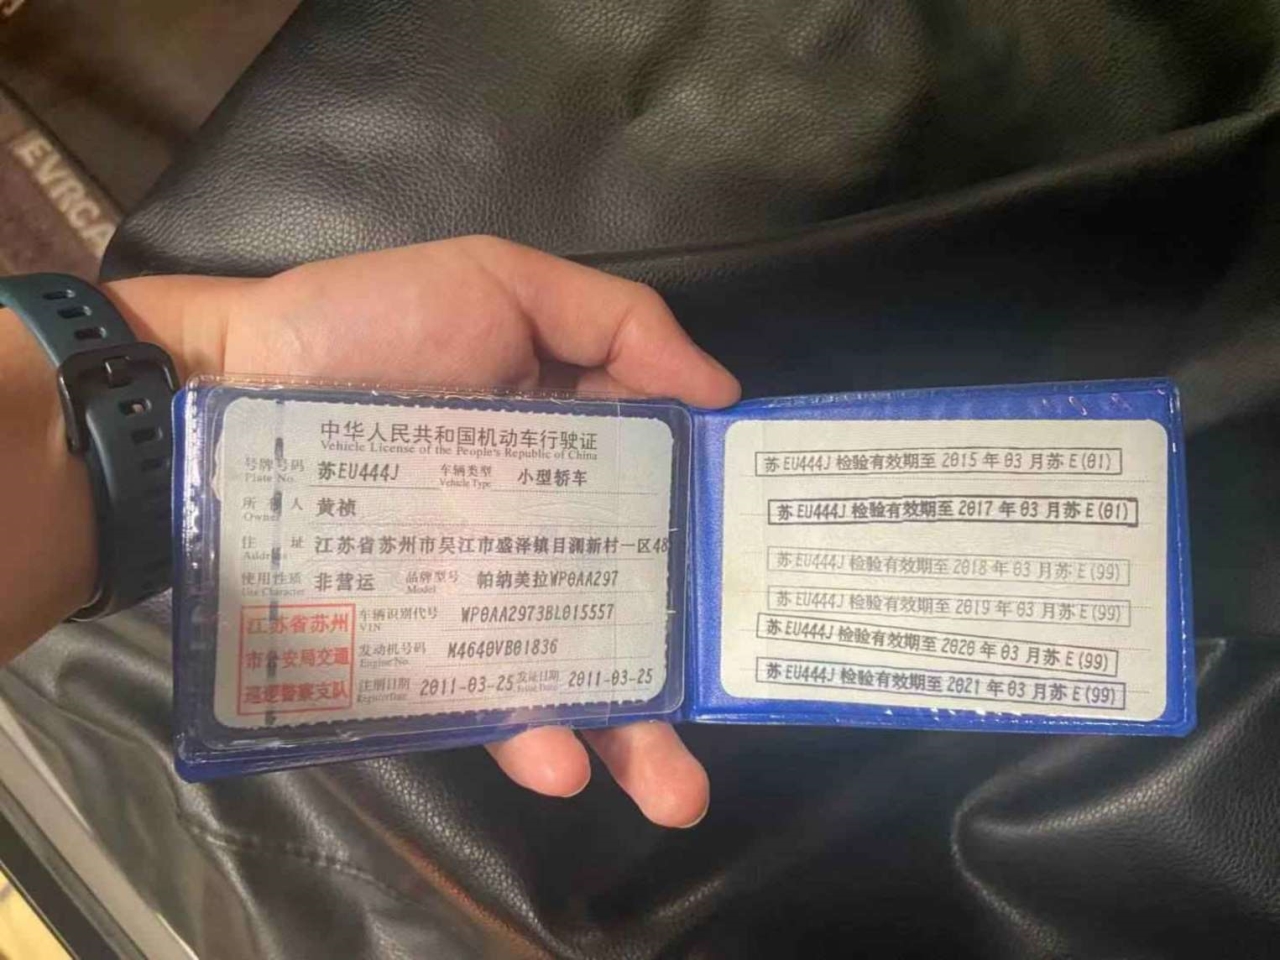 EVRCA
中华人民共和国机动车行驶证
Vehicle License of the People's Republic of China
号牌号码 苏EU444J 车辆类型 小型轿车
Plate No. Vehicle Type
所 人 黄桢
Owner
住 址 江苏省苏州市吴江市盛泽镇目澜新村一区48
Address
使用性质 非营运 品牌型号 帕纳美拉WP0AA297
Use Character Model
车辆识别代号 WP0AA2973BL015557
VIN
发动机号码 M4640VB01836
Engine No.
注册日期 2011-03-25 发证日期 2011-03-25
Register Date Issue Date
江苏省苏州
市公安局交通
巡逻警察支队
苏EU444J 检验有效期至 2015 年 03 月苏 E(01)
苏EU444J 检验有效期至 2017 年 03 月苏 E(01)
苏EU444J 检验有效期至 2018 年 03 月苏 E(99)
苏EU444J 检验有效期至 2019 年 03 月苏 E(99)
苏EU444J 检验有效期至 2020 年 03 月苏 E(99)
苏EU444J 检验有效期至 2021 年 03 月苏 E(99)